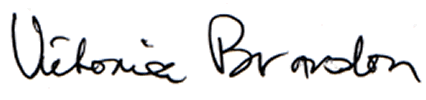 Victoria Brandon